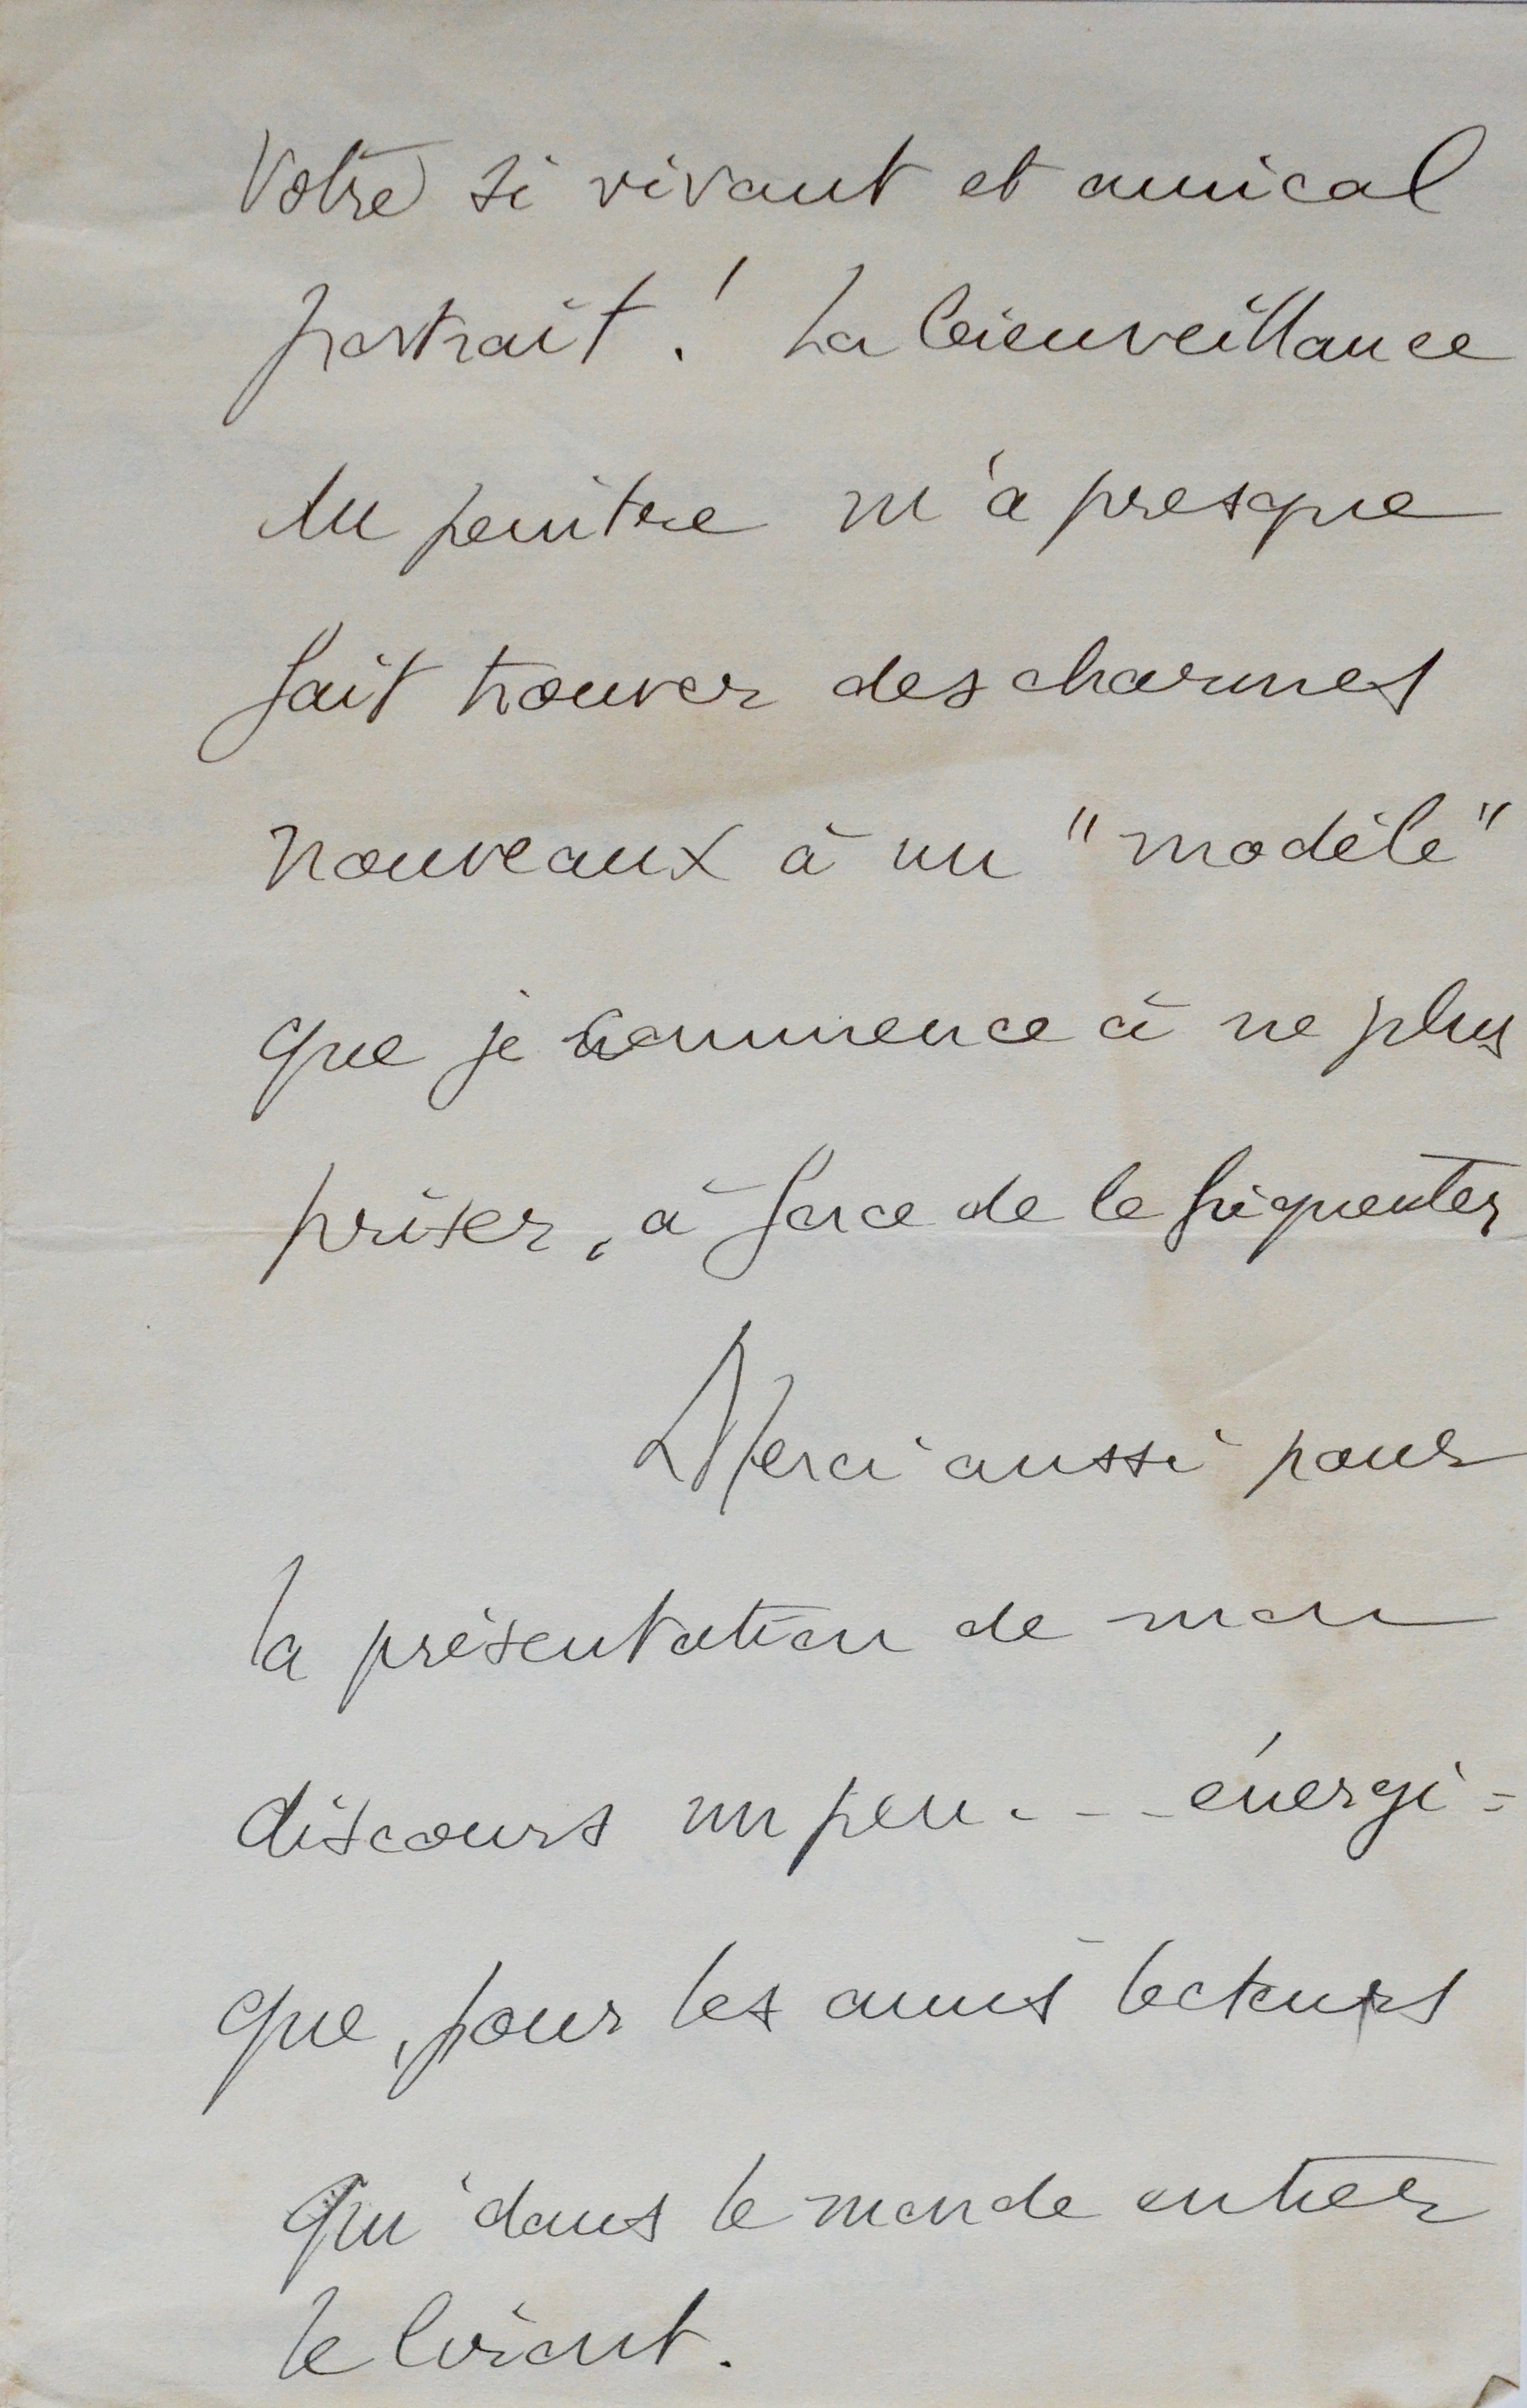 Votre si vivant et amical
portrait ! La bienveillance
du peintre m'a presque
fait trouver des charmes
nouveaux à un "modèle"
que je commence à ne plus
priser, à force de le fréquenter
Merci aussi pour
la présentation de mon
discours un peu... énergi=
que, pour les amis lecteurs
qui dans le monde entier
le liront.